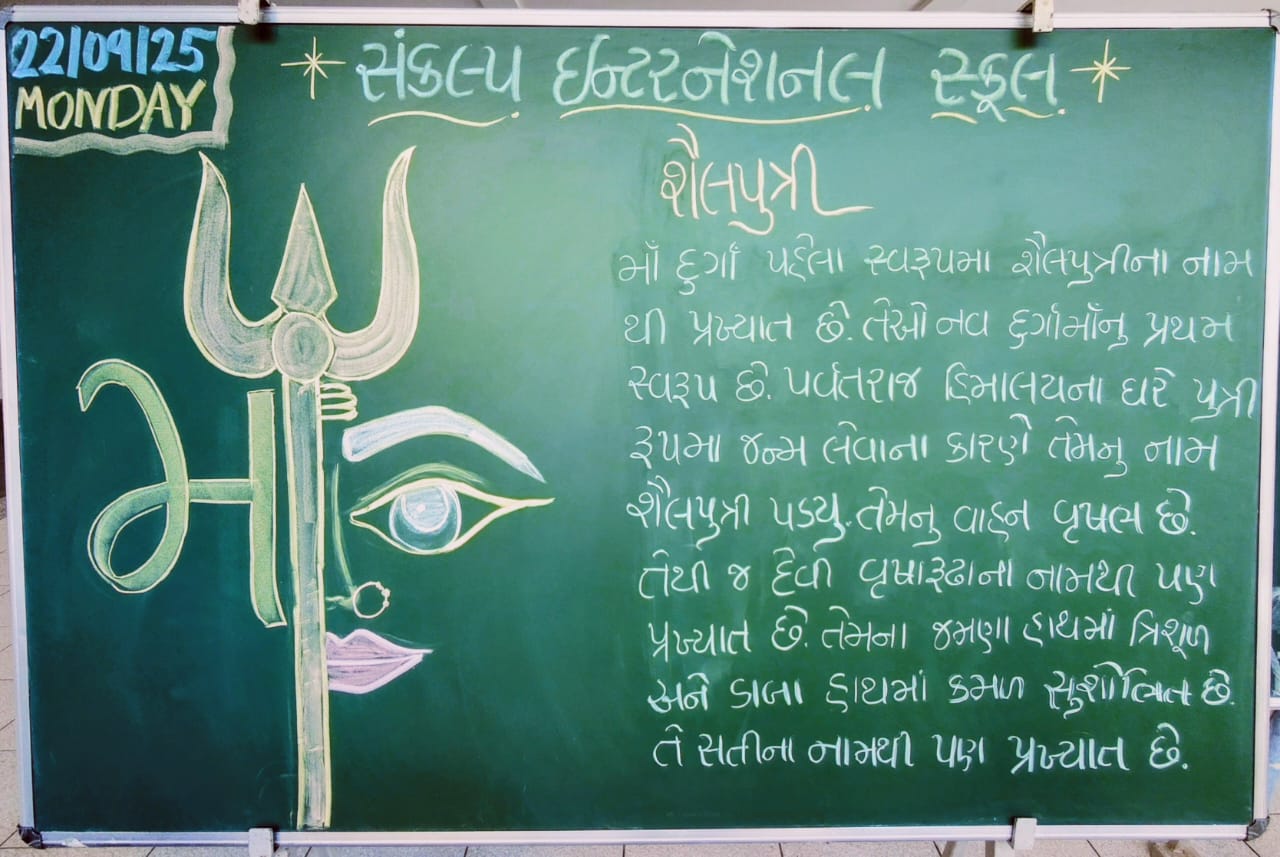 22/09/25
MONDAY
સંકલ્પ ઇન્ટરનેશનલ સ્કૂલ
શૈલપુત્રી
માઁ દુર્ગા પહેલા સ્વરૂપમા શૈલપુત્રીના નામ
થી પ્રખ્યાત છે. તેઓ નવ દુર્ગામાઁનુ પ્રથમ
સ્વરૂપ છે. પર્વતરાજ હિમાલયના ઘરે પુત્રી
રૂપમા જન્મ લેવાના કારણે તેમનુ નામ
શૈલપુત્રી પડયુ. તેમનુ વાહન વૃષભ છે.
તેથી જ દેવી વૃષારૂઢાના નામથી પણ
પ્રખ્યાત છે. તેમના જમણા હાથમાં ત્રિશૂળ
અને ડાબા હાથમાં કમળ સુશોભિત છે.
તે સતીના નામથી પણ પ્રખ્યાત છે.
માઁ